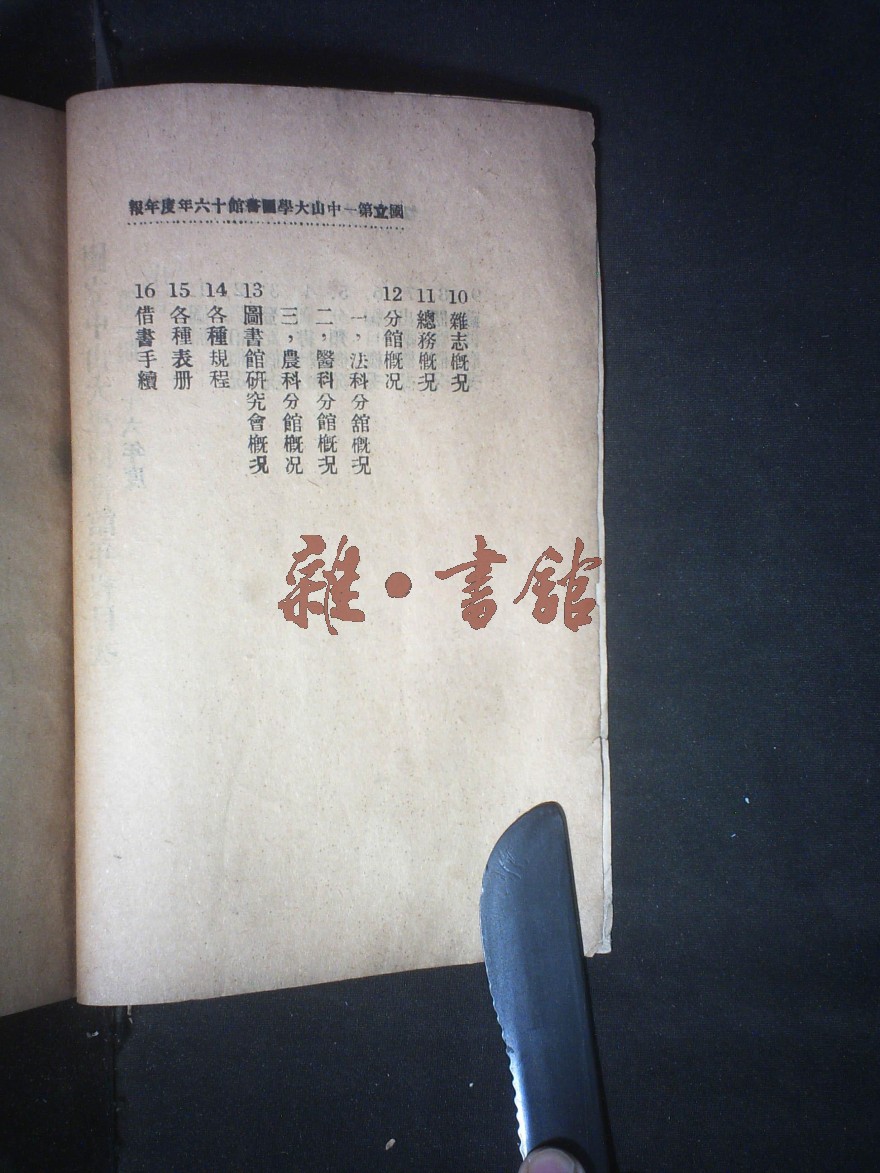 國立第一中山大學圖書館十六年度年報
10 雜志概況
11 總務概况
12 分館概况
一，法科分舘概況
二，醫科分館概況
三，農科分館概况
13 圖書館研究會概況
14 各種規程
15 各種表册
16 借書手續
雜·書館